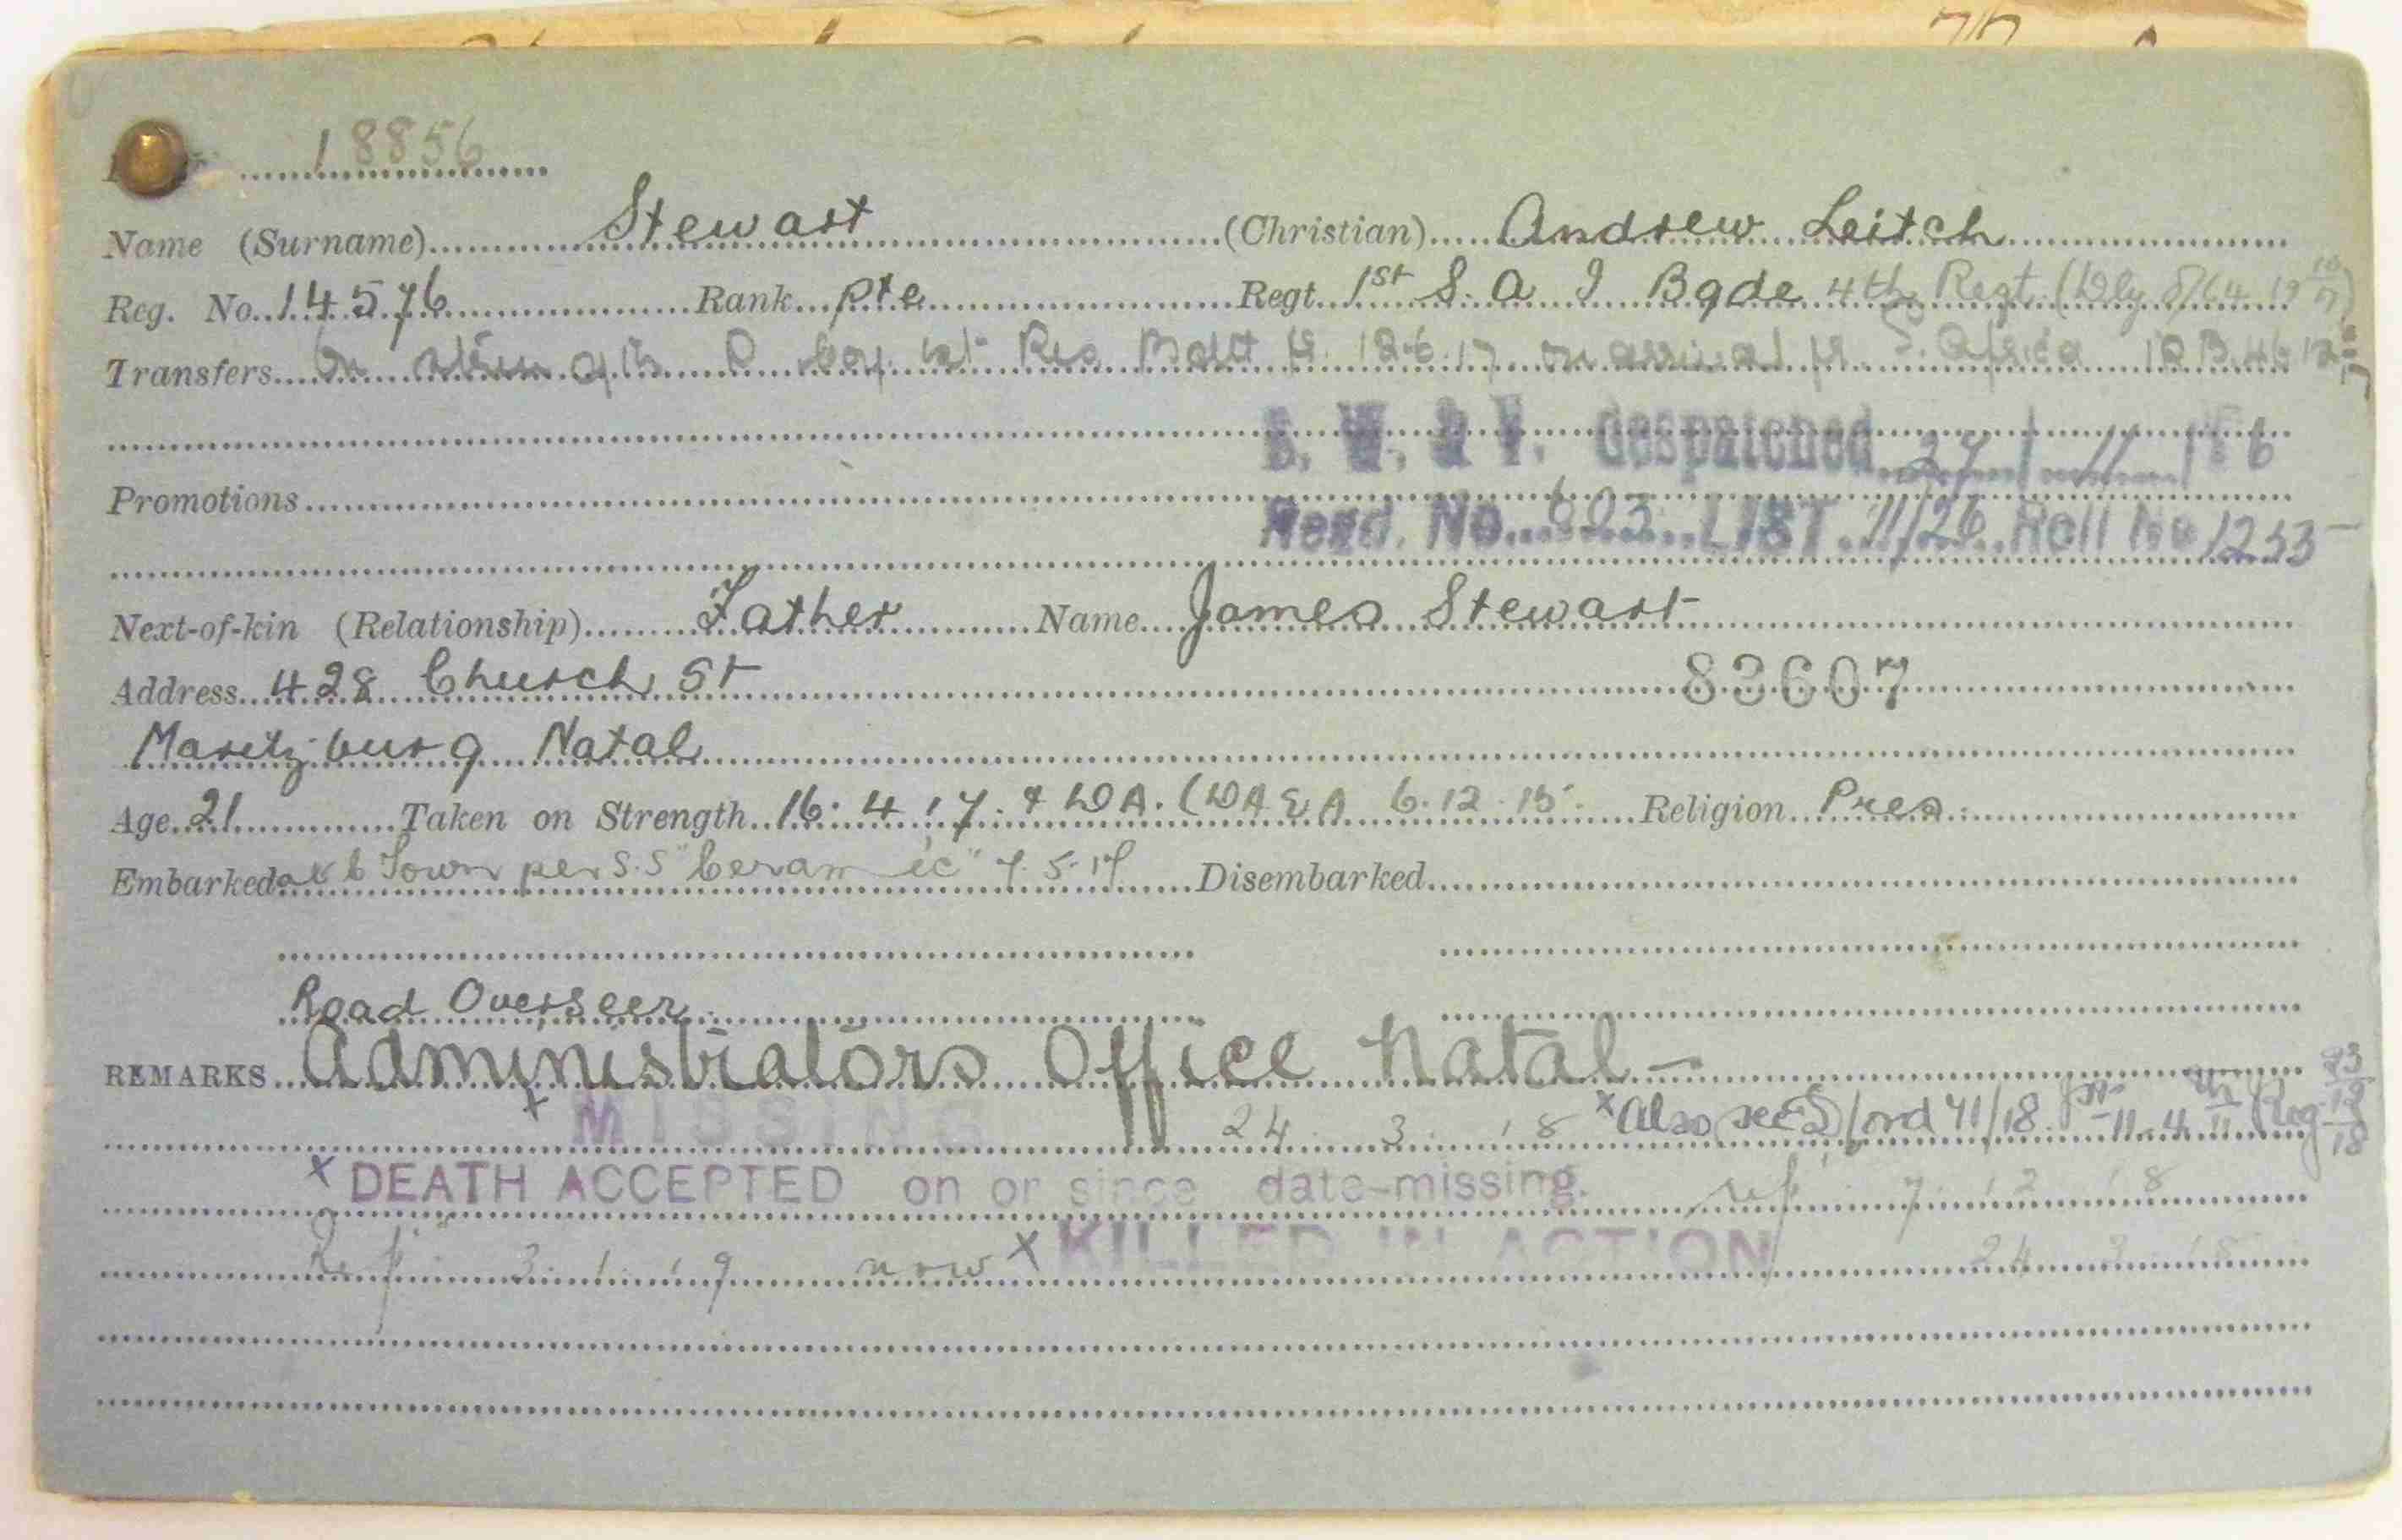 18856
Name (Surname) Stewart (Christian) Andrew Leitch
Reg. No. 14576 Rank Pte Regt. 1st S. A I Bgde 4th Regt.
Transfers On D Coy 1st Res Battl 12.6.17 on arrival fr. S. Africa
B. W. & V. despatched 27/11/26
Promotions
Regd. No. 603 LIST 11/26 Roll No 1253
Next-of-kin (Relationship) Father Name James Stewart
Address 428 Church St 83607
Maritzburg Natal
Age 21 Taken on Strength 16.4.17. Religion Pres.
Embarked at C Town per S.S "Ceramic" 7.5.17 Disembarked
Road Overseer
REMARKS Administrators Office Natal –
x MISSING 24 3 18 x Also see
x DEATH ACCEPTED on or since date missing. rep. 7 12 18
Rep. 3.1.19 now x KILLED IN ACTION 24 3 18